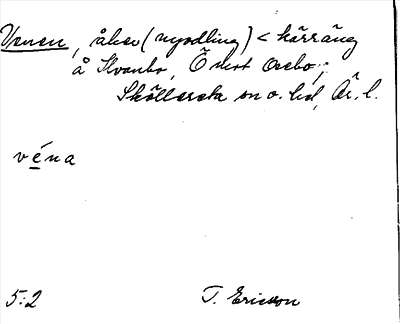 Venen, åker (nyodling) < kärräng
å Kvarnbo, Ö mot Osebo,
Sköllersta sn o. hd, Är. l.
véna
5:2 T. Ericsson